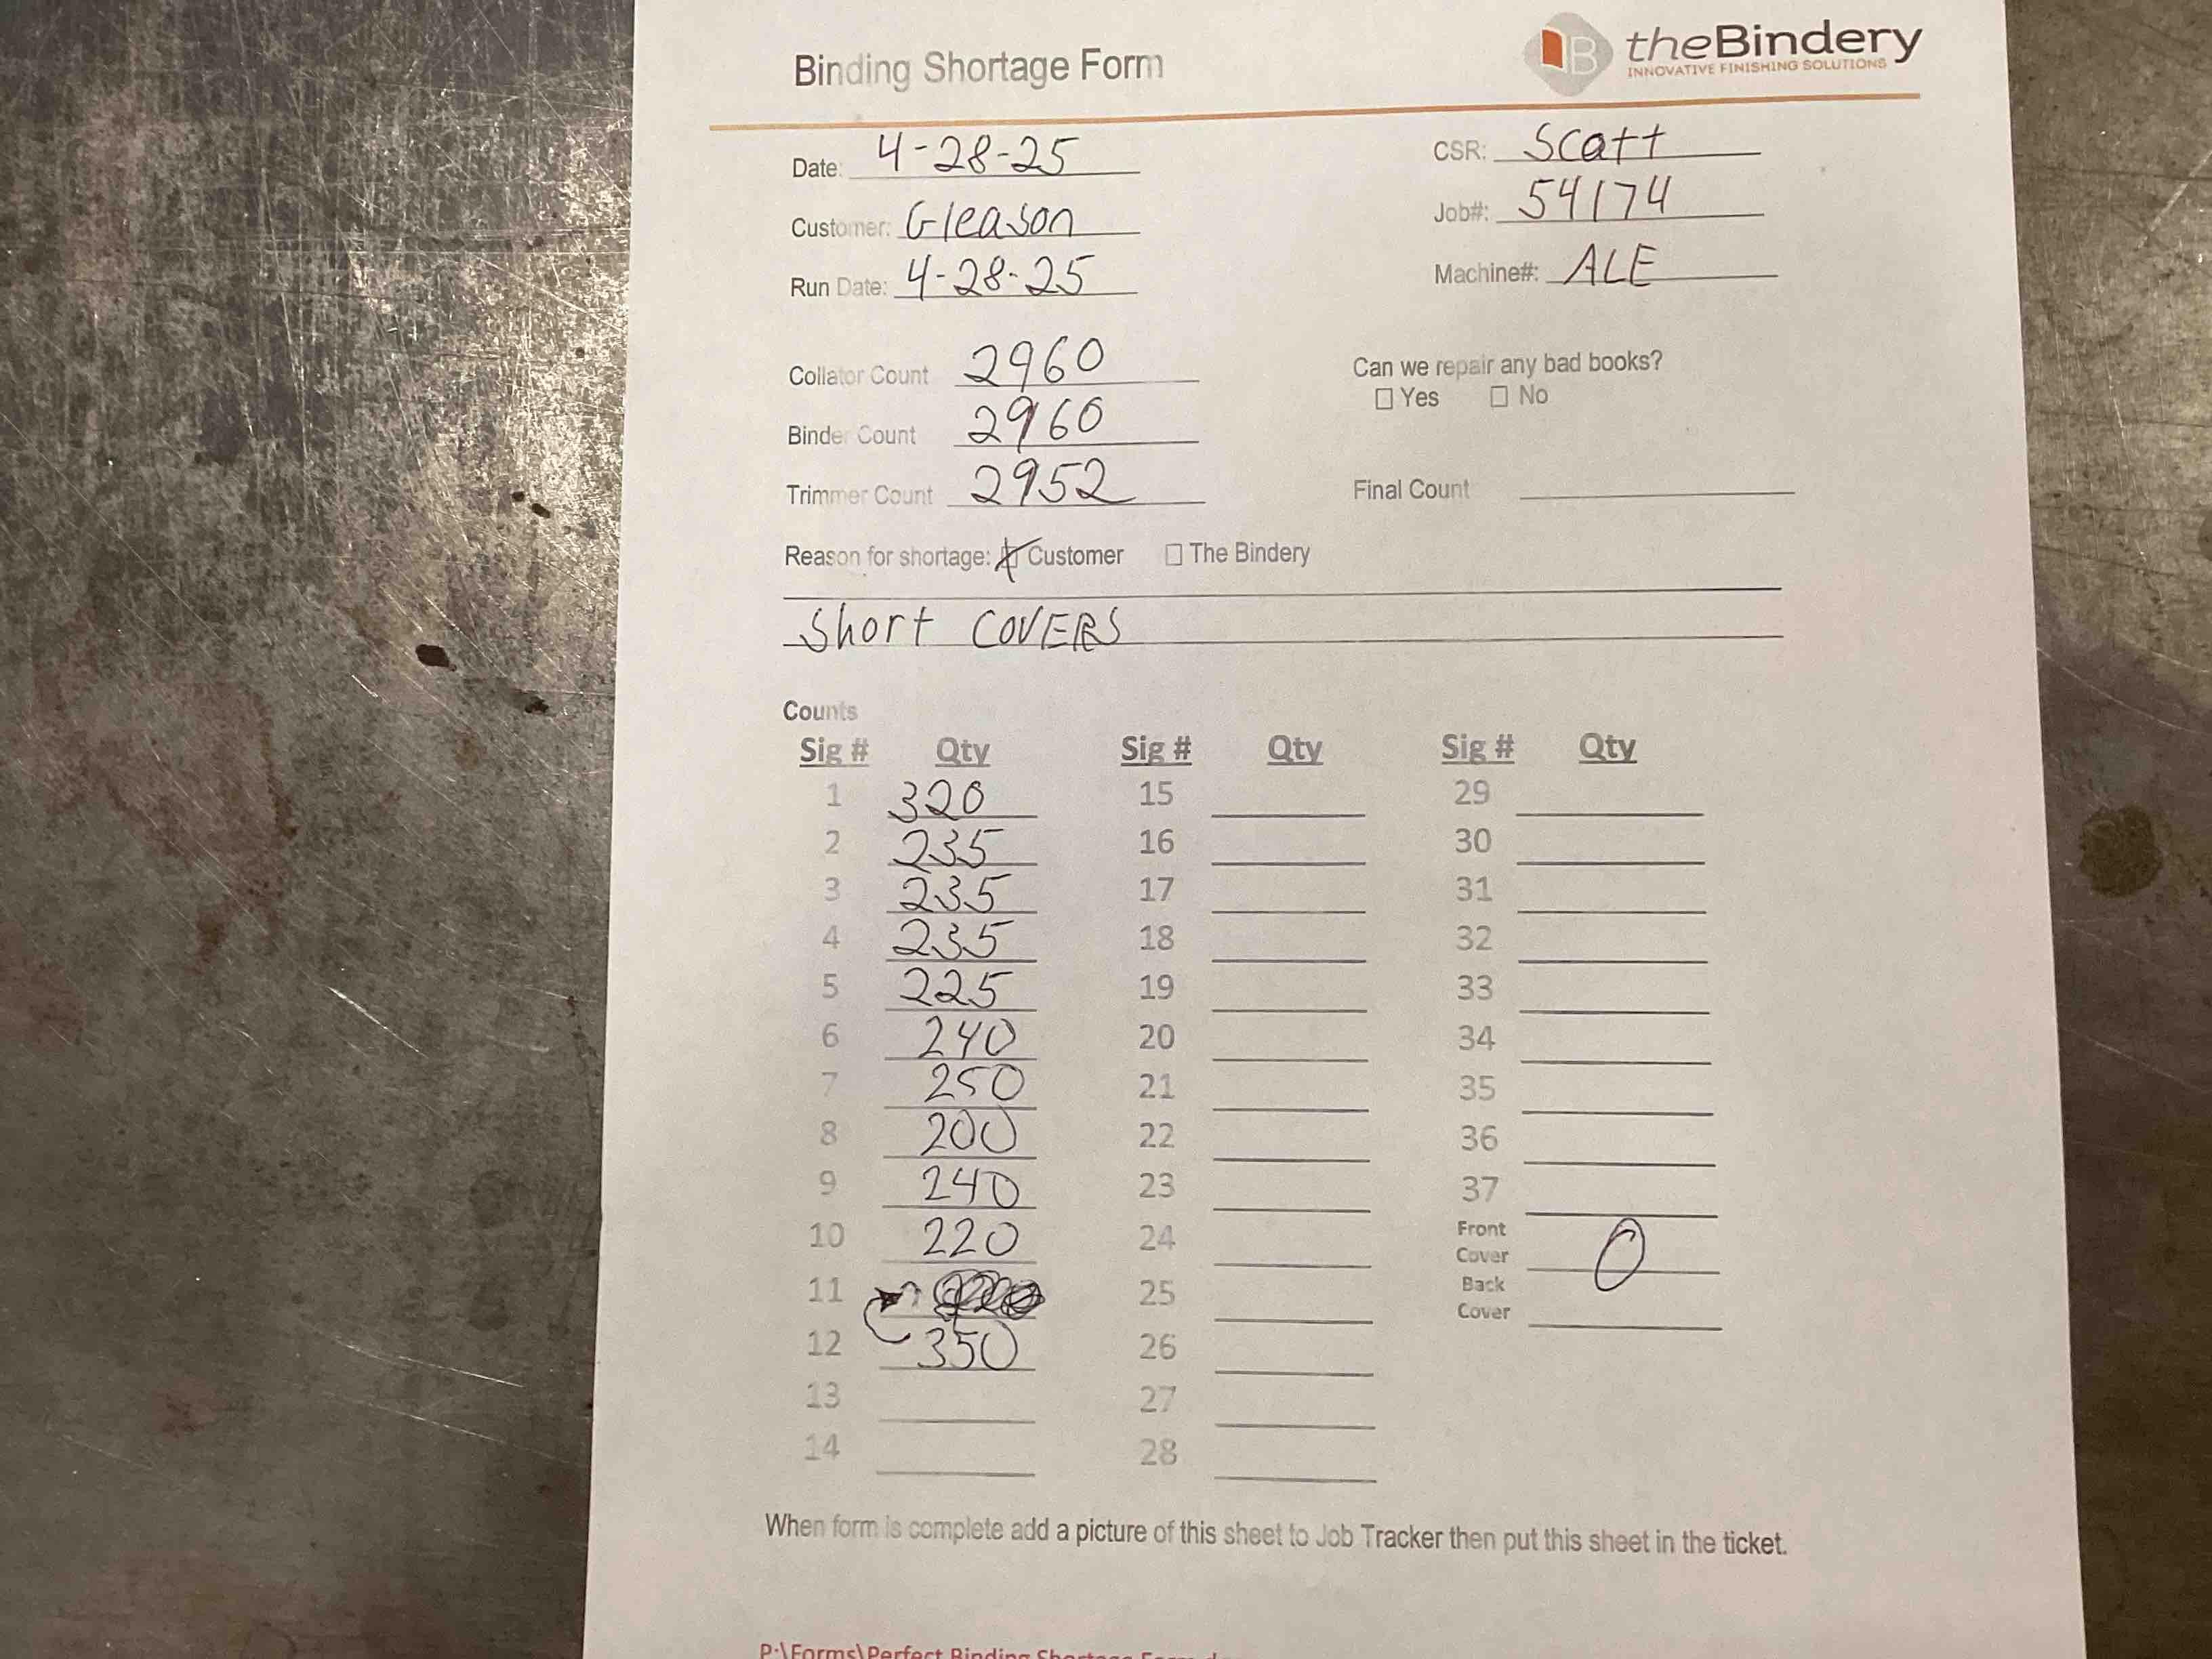 Binding Shortage Form
B theBindery
INNOVATIVE FINISHING SOLUTIONS
Date: 4-28-25
CSR: Scott
Customer: Gleason
Job#: 54174
Run Date: 4-28-25
Machine#: ALE
Collator Count 2960
Can we repair any bad books?
☐ Yes ☐ No
Binder Count 2960
Trimmer Count 2952
Final Count
Reason for shortage: ☒ Customer ☐ The Bindery
Short COVERS
Counts
Sig # Qty Sig # Qty Sig # Qty
1 320 15 29
2 235 16 30
3 235 17 31
4 235 18 32
5 225 19 33
6 240 20 34
7 250 21 35
8 200 22 36
9 240 23 37
10 220 24 Front Cover 0
11 25 Back Cover
12 350 26
13 27
14 28
When form is complete add a picture of this sheet to Job Tracker then put this sheet in the ticket.
P:\Forms\Perfect Binding Shortage